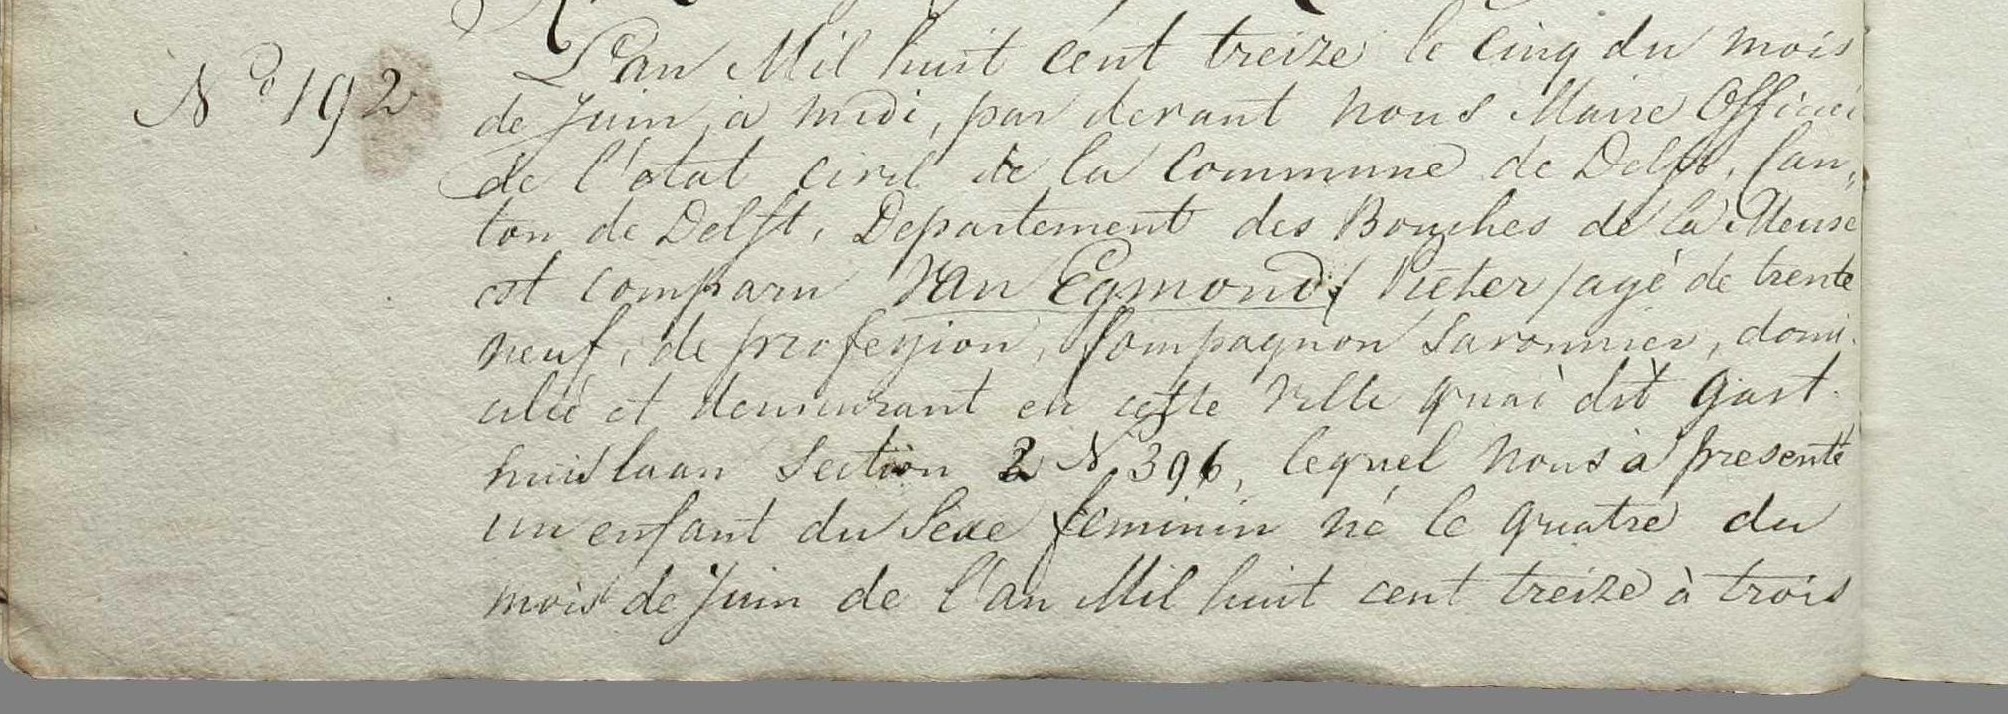 Nº 192
L'an Mil huit cent treize le cinq du mois
de Juin, à midi, par devant nous Maire Officier
de l'état civil de la Commune de Delft, Can,,
ton de Delft, Departement des Bouches de la Meuse
est comparu Van Egmond / Pieter / agé de trente
neuf, de profession, Compagnon Savonnier, domi-
cilié et demeurant en cette Ville quai dit Gast-
huislaan Section 2 N 396, lequel nous à presenté
un enfant du Sexe feminin né le quatre du
mois de Juin de l'an Mil huit cent treize à trois